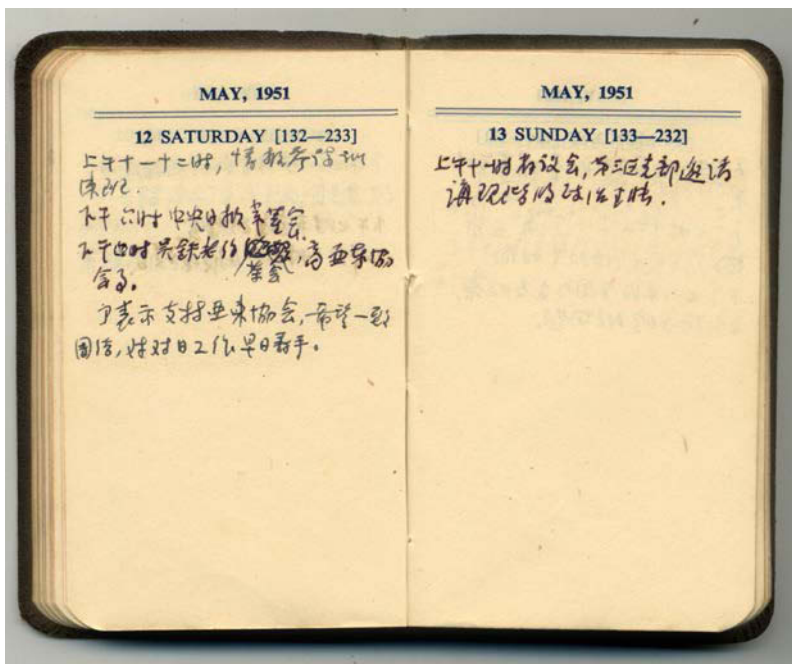 MAY, 1951
12 SATURDAY [132—233]
上午十一十二时，情报参谋训
练班.
下午六时中央日报董监会.
下午四时吴铁老约茶会，商亚东协
会事。
予表示支持亚东協会，希望一致
團结，使对日工作早日着手。
MAY, 1951
13 SUNDAY [133—232]
上午十时 会，第三区党部邀请
讲现阶段政治主 .